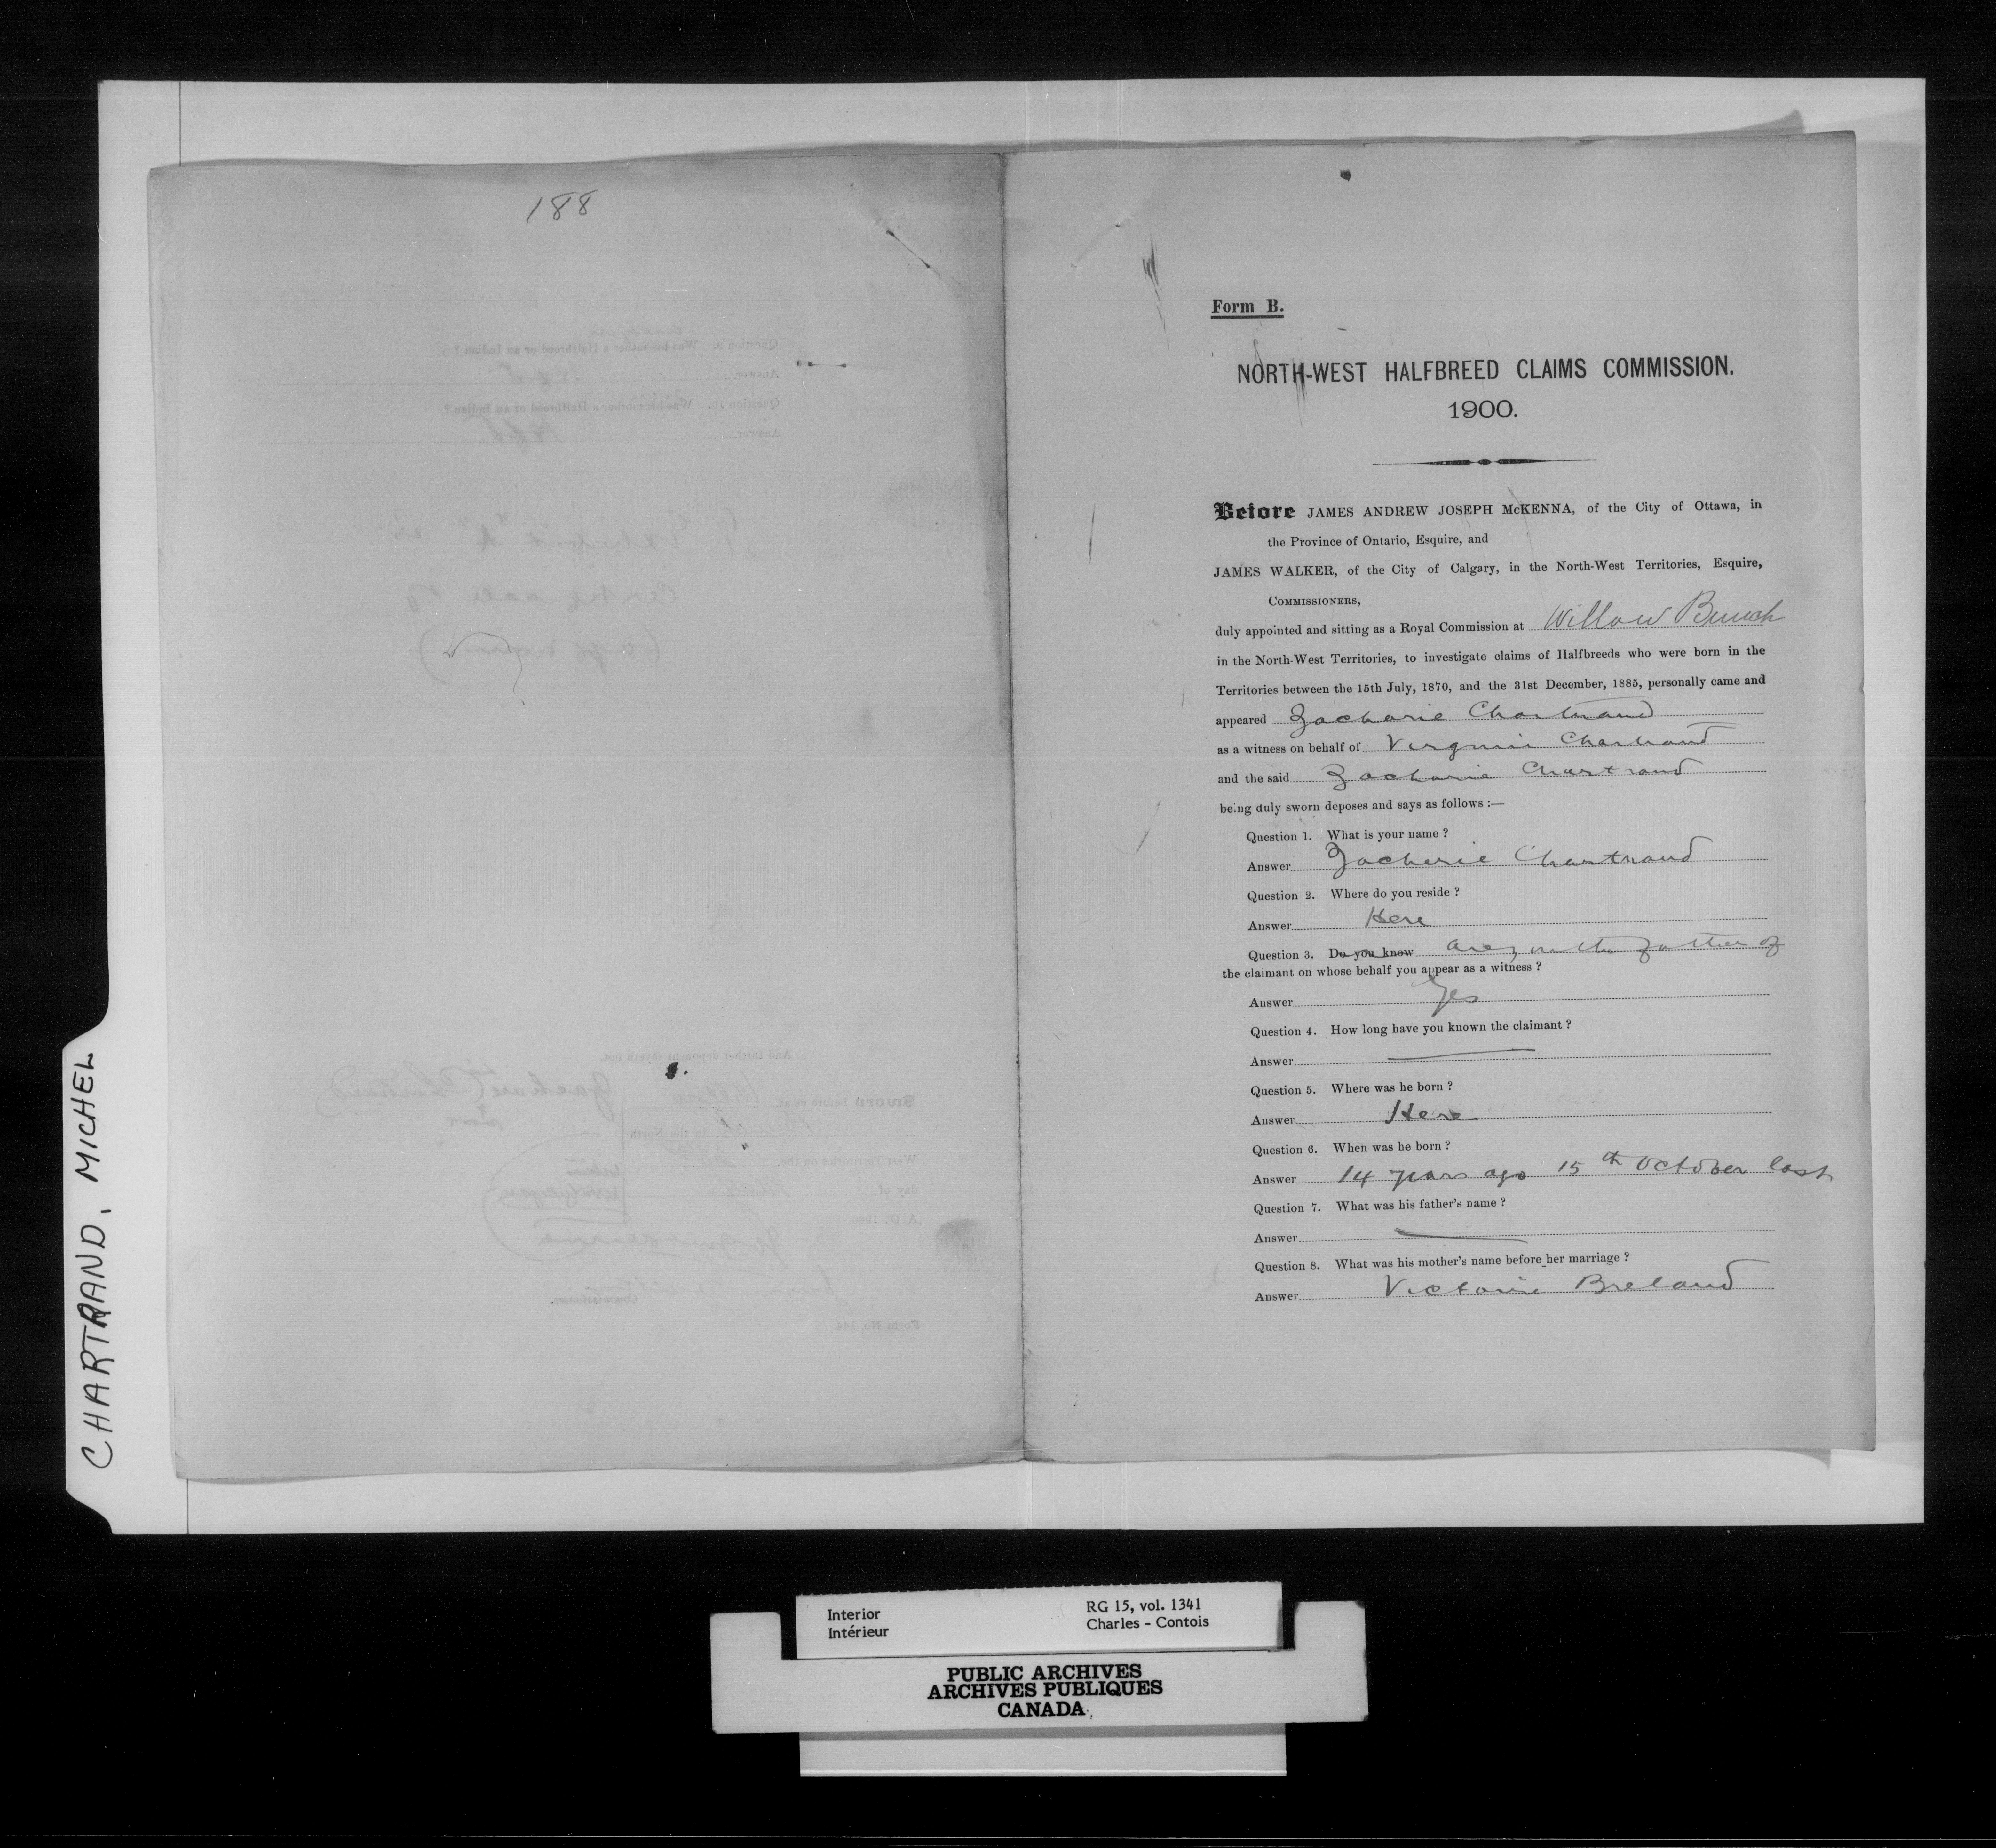 188
Form B.
NORTH-WEST HALFBREED CLAIMS COMMISSION.
1900.
Before JAMES ANDREW JOSEPH McKENNA, of the City of Ottawa, in
the Province of Ontario, Esquire, and
JAMES WALKER, of the City of Calgary, in the North-West Territories, Esquire,
COMMISSIONERS,
duly appointed and sitting as a Royal Commission at Willow Bunch
in the North-West Territories, to investigate claims of Halfbreeds who were born in the
Territories between the 15th July, 1870, and the 31st December, 1885, personally came and
appeared Zacharie Chartrand
as a witness on behalf of Virginie Chartrand
and the said Zacharie Chartrand
being duly sworn deposes and says as follows :—
Question 1. What is your name ?
Answer Zacharie Chartrand
Question 2. Where do you reside ?
Answer Here
Question 3. Do you know are you the father of
the claimant on whose behalf you appear as a witness ?
Answer Yes
Question 4. How long have you known the claimant ?
Answer —
Question 5. Where was he born ?
Answer Here
Question 6. When was he born ?
Answer 14 years ago 15th October last
Question 7. What was his father's name ?
Answer —
Question 8. What was his mother's name before her marriage ?
Answer Victorine Breland
CHARTRAND, MICHEL
Interior
Intérieur
RG 15, vol. 1341
Charles - Contois
PUBLIC ARCHIVES
ARCHIVES PUBLIQUES
CANADA